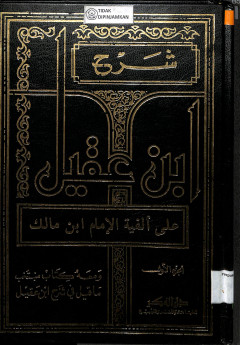 TIDAK
DIPINJAMKAN
شرح
ابن عقيل
على ألفية الإمام ابن مالك
الجزء الأول
ومعه كتاب منتخب
ما قيل في شرح ابن عقيل